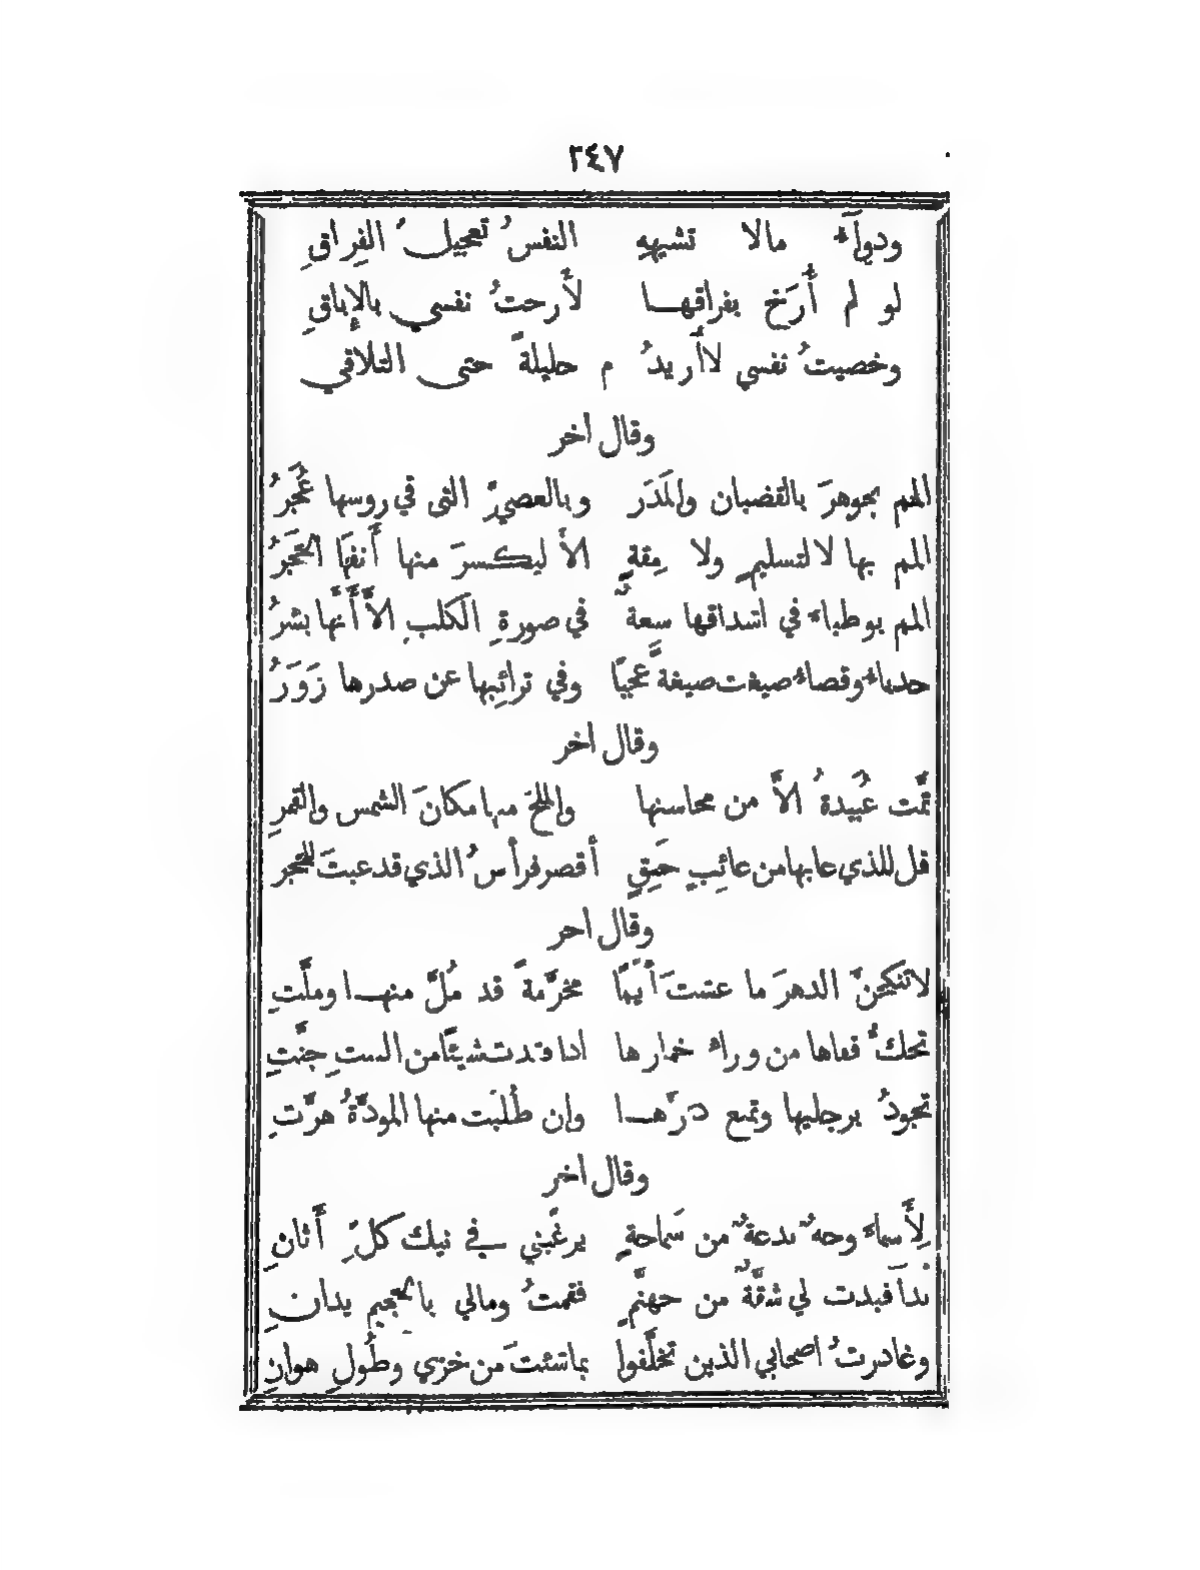 ٢٤٧
ودواءُ مالا تشتهيهِ النفسُ تعجيلُ الفِراقِ
لو لم أُرَح بفراقهـا لأَرحتُ نفسي بالإِباقِ
وخصيتُ نفسي لاأُريدُ م حليلةً حتى التلاقي
وقال اخر
المم بجوهرَ بالقضبان والمَدَر وبالعصيِّ التى في روسها عُجَرُ
المم بها لا لتسليمٍ ولا مِقةٍ الاَّ ليكسرَ منها أَنفَها الحَجَرُ
المم بوطباءَ في اشداقها سعةٌ في صورةِ الكلبِ الاَّ أَنَّها بشرُ
حدباءُ وقصاءُ صيغت صيغةً عجبًا وفي ترائِبها عن صدرها زَوَرُ
وقال اخر
تمَّت عُبَيدةُ الاَّ من محاسنها والملحُ منها مكانَ الشمس والقمرِ
قل للذي عابها من عائِبٍ حَمِقٍ أَقصر فرأْسُ الذي قد عبتَ للحجر
وقال اخر
لاتنكحنَّ الدهرَ ما عشتَ أَيّمًا مخرَّمةً قد مُلَّ منهـا وملَّتِ
تحكُّ قفاها من وراءِ خمارها اذا فقدت شيئًا من البيتِ جنَّتِ
تجودُ برجليها وتمنع دَرَّهـا وإن طُلبَت منها المودَّةُ هرَّتِ
وقال اخر
لِأَسماءَ وجهٌ بدعةٌ من سَماجةٍ يرغّبني في نيك كلِّ أَتانِ
بَدا فبدت لي شقَّةٌ من جهنَّمٍ فقمتُ ومالي بالجحيم يدانِ
وغادرتُ اصحابي الذين تخلَّفوا بماشئتَ من خزيٍ وطُولِ هوانِ